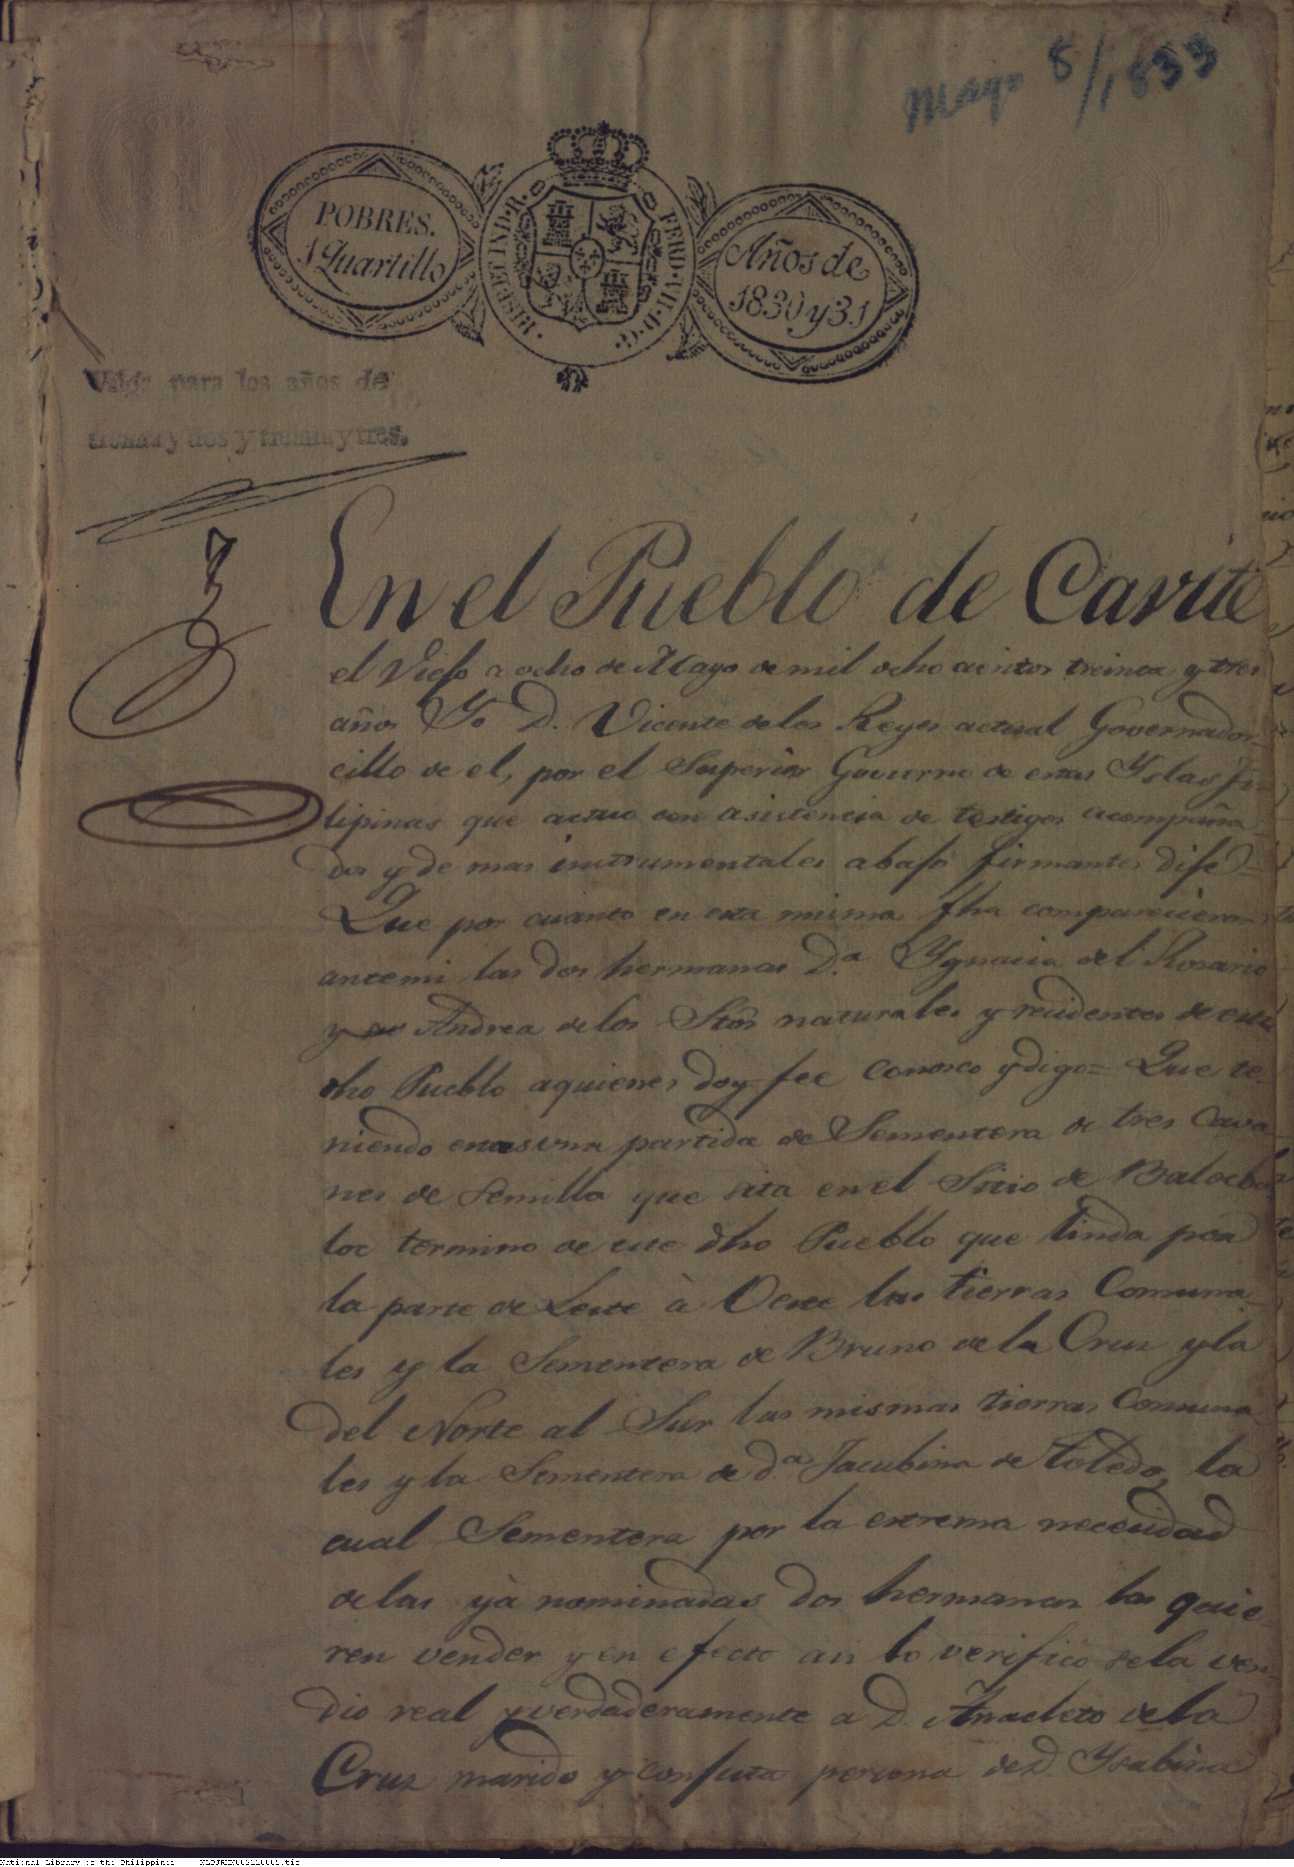 Mayo 8/1833
POBRES.
1 Quartillo
HISP. ET IND. R.
FERD. VII. D. G.
Años de
1830 y 31
Valga para los años de
treinta y dos y treinta y tres.
En el Pueblo de Cavite
el Viejo a ocho de Mayo de mil ocho cientos treinta y tres
años Yo D. Vicente de los Reyes actual Governador-
cillo de el, por el Superior Govierno de estas Yslas Fi-
lipinas que actuo con asistencia de testigos acompaña-
dos y de mas instrumentales abajo firmantes dije=
Que por cuanto en esta misma fha comparecieron
antemi las dos hermanas D.ª Ygnacia del Rosario
y Andrea de los Stõs naturales y recidentes de este
dho Pueblo aquienes doy fee conosco y digo= Que te-
niendo estas una partida de Sementera de tres cava-
nes de semilla que sita en el Sitio de Balocba
loc termino de este dho Pueblo que linda por
la parte de Leste à Oeste las tierras Comuna-
les y la Sementera de Bruno de la Cruz y la
del Norte al Sur las mismas tierras Comuna-
les y la Sementera de d.ª Jacubina de Toledo, la
cual Sementera por la extrema necesidad
de las yà nominadas dos hermanas las quie-
ren vender y en efecto asi lo verifico se la ven-
dio real y verdaderamente a D. Anacleto de la
Cruz marido y conjuta persona de D. Ysabina
National Library of the Philippines